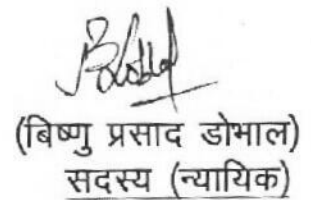 (बिष्णु प्रसाद डोभाल)
सदस्य (न्यायिक)